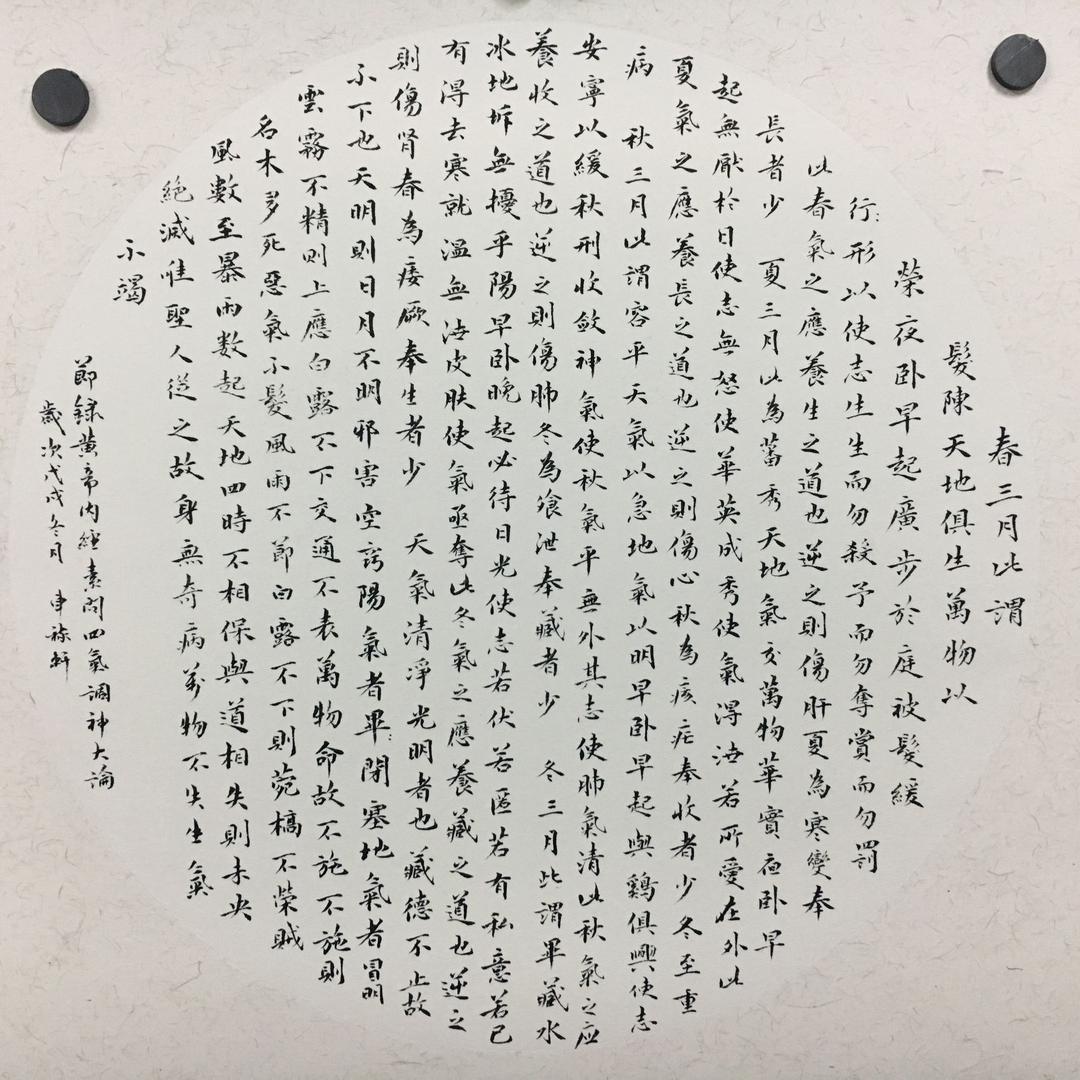 春三月此謂
髮陳天地俱生萬物以
榮夜卧早起廣步於庭被髮緩
行形以使志生生而勿殺予而勿奪賞而勿罰
此春氣之應養生之道也逆之則傷肝夏為寒變奉
長者少 夏三月此為蕃秀天地氣交萬物華實夜卧早
起無厭於日使志無怒使華英成秀使氣得洩若所愛在外此
夏氣之應養長之道也逆之則傷心秋為痎疟奉收者少冬至重
病 秋三月此謂容平天氣以急地氣以明早卧早起與鷄俱興使志
安寧以緩秋刑收斂神氣使秋氣平無外其志使肺氣清此秋氣之应
養收之道也逆之則傷肺冬為飱泄奉藏者少 冬三月此謂畢藏水
冰地坼無擾乎陽早卧晚起必待日光使志若伏若匿若有私意若已
有得去寒就溫無洩皮肤使氣亟奪此冬氣之應養藏之道也逆之
則傷肾春為痿厥奉生者少 天氣清淨光明者也藏德不止故
不下也天明則日月不明邪害空竅陽氣者畢閉塞地氣者冒明
雲霧不精則上應白露不下交通不表萬物命故不施不施則
名木多死惡氣不髮風雨不節白露不下則菀槁不榮賊
風數至暴雨数起天地四時不相保與道相失則未央
絕滅惟聖人從之故身無奇病萬物不失生氣
不竭
節録黄帝内經素問四氣調神大論
歲次戊戌冬月 申